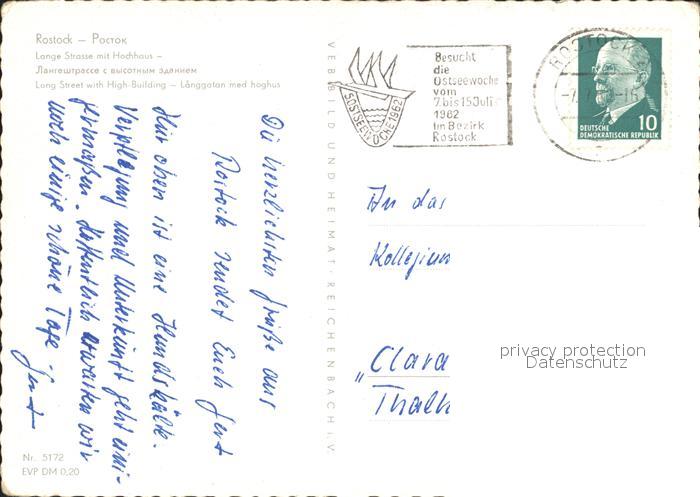 Rostock — Росток
Lange Strasse mit Hochhaus —
Лангештрассе с высотным зданием
Long Street with High-Building — Långgatan med höghus
Die herzlichsten Grüße aus
Rostock sendet Euch Gert
Hier oben ist eine Hundekälte.
Verpflegung und Unterkunft geht eini-
germaßen. Hoffentlich erwarten wir
noch einige schöne Tage.
Gert
Nr. 5172
EVP DM 0,20
VEB BILD UND HEIMAT · REICHENBACH i. V.
OSTSEEWOCHE 1962
Besucht
die
Ostseewoche
vom
7. bis 15 Juli
1962
im Bezirk
Rostock
ROSTOCK
10
DEUTSCHE
DEMOKRATISCHE REPUBLIK
An das
Kollegium
„Clara
privacy protection
Datenschutz